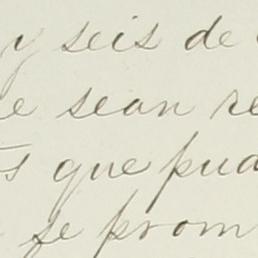 y seis de
e sean re
s que pud
se prom